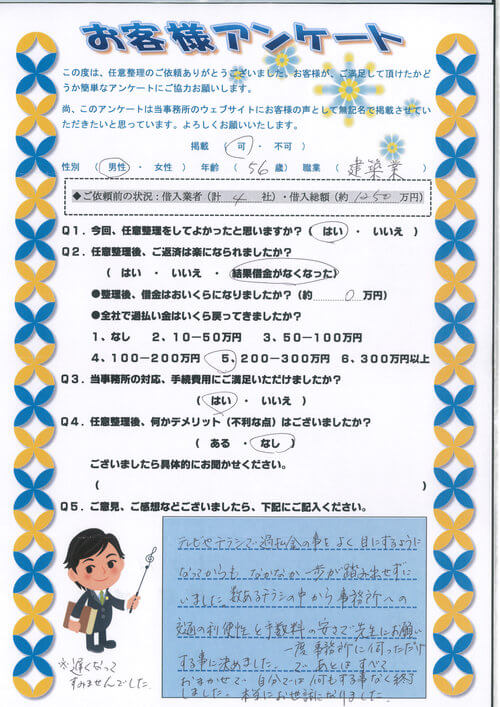 お客様アンケート
この度は、任意整理のご依頼ありがとうございました。お客様が、ご満足して頂けたかど
うか簡単なアンケートにご協力お願いします。
尚、このアンケートは当事務所のウェブサイトにお客様の声として無記名で掲載させてい
ただきたいと思っています。よろしくお願いいたします。
掲載 ( 可 ・ 不可 )
性別 ( 男性 ・ 女性 ) 年齢 ( 56 歳) 職業 ( 建築業 )
◆ご依頼前の状況：借入業者（計 4 社）・借入総額（約 1250 万円）
Q1．今回、任意整理をしてよかったと思いますか？( はい ・ いいえ )
Q2．任意整理後、ご返済は楽になられましたか？
( はい ・ いいえ ・ 結果借金がなくなった)
●整理後、借金はおいくらになりましたか？(約 0 万円)
●全社で過払い金はいくら戻ってきましたか？
1、なし 2、10－50万円 3、50－100万円
4、100－200万円 5、200－300万円 6、300万円以上
Q3．当事務所の対応、手続費用にご満足いただけましたか？
( はい ・ いいえ )
Q4．任意整理後、何かデメリット（不利な点）はございましたか？
( ある ・ なし )
ございましたら具体的にお聞かせください。
( )
Q5．ご意見、ご感想などございましたら、下記にご記入ください。
テレビやチラシで過払金の事をよく目にするように
なってからも なかなか一歩が踏み出せずに
いました。数あるチラシの中から事務所への
交通の利便性と手数料の安さで先生にお願い
する事に決めました。一度事務所に伺っただけ
で あとはすべて
おまかせで 自分では何もする事なく終了
しました。本当にお世話になりました。
※遅くなって
すみませんでした。